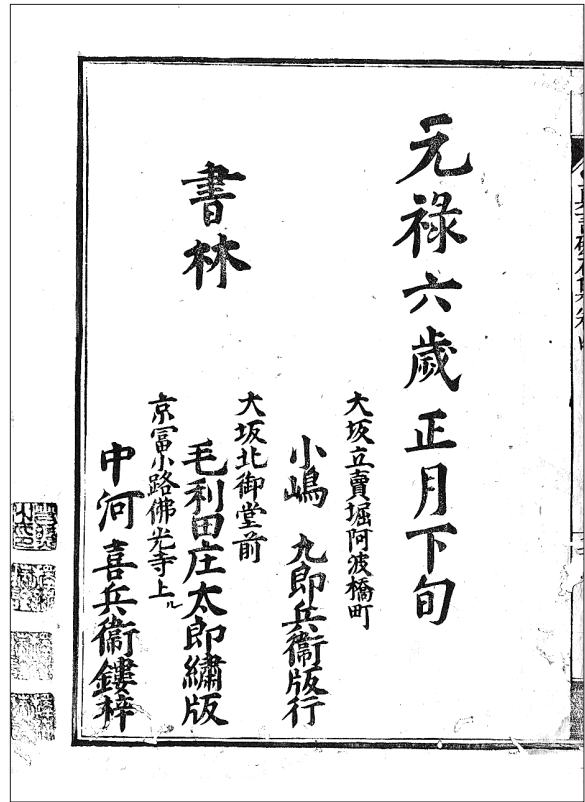 元禄六歳正月下旬
大坂立賣堀阿波橋町
小嶋九郎兵衞版行
大坂北御堂前
書林
毛利田庄太郎繡版
京冨小路佛光寺上ル
中河喜兵衞鏤梓